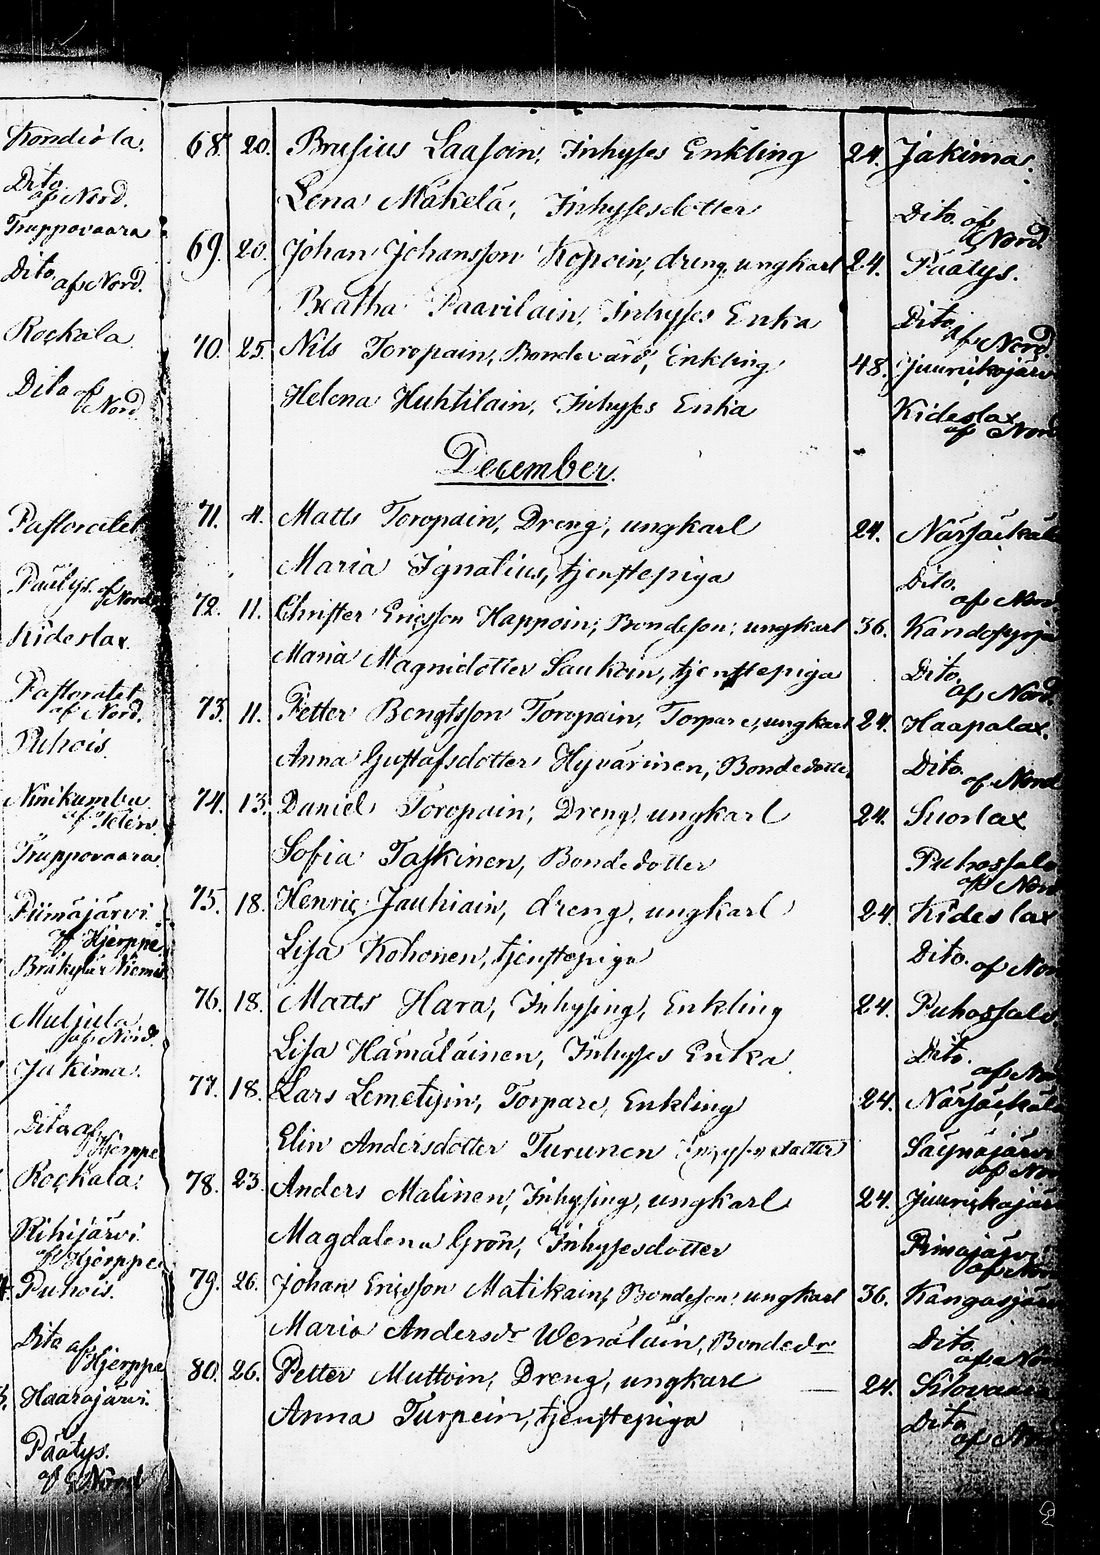 Kondiola.
Dito
af Nord.
Truppovaara
Dito
af Nord.
Rockala
Dito af
Nord
Pastoratet
Päätys af Nord
Kideslax.
Pastoratet
af Nord.
Puhois.
Ninikumbu
af Pelen.
Truppovaara
Piimäjärvi
af Hjerppe
Bräkylä Niemis
Muljula
af Nord.
Jakima.
Dito af
Hjerppe
Rockala.
Rihijärvi
af Hjerppe
Puhois.
Dito af
Hjerppe
Haarajärvi.
Päätys.
af Nord
68. 20. Brusius Laasoin, Inhyses Enkling 24. Jakima.
Lena Mäkelä, Inhysesdotter Dito. af
Nord.
69. 20. Johan Johansson Kopoin, dreng, ungkarl 24. Päätys.
Beatha Paavilain, Inhyses Enka Dito
af Nord
70. 25. Nils Toropain, Bondevärd, Enkling 48. Juurikojärvi
Helena Huhtilain, Inhyses Enka Kideslax
af Nord
December.
71. 4. Matts Toropain, Dreng, ungkarl 24. Närsäkkälä
Maria Ignatius, tjenstepiga Dito.
af Nord
72. 11. Christer Ericsson Happoin, Bondeson, ungkarl 36.
Maria Magnidotter Laukoin, tjenstepiga Dito
af Nord.
73. 11. Petter Bengtsson Toropain, Torpare, ungkarl 24. Haapalax.
Anna Gustafsdotter Hyvärinen, Bondedotter Dito
af Nord
74. 13. Daniel Toropain, Dreng, ungkarl 24. Suorlax
Sofia Taskinen, Bondedotter Puhossalo
af Nord
75. 18. Henric Jauhiain, dreng, ungkarl 24. Kideslax
Lisa Kohonen, tjenstepiga Dito. af Nord
76. 18. Matts Hara, Inhysing, Enkling 24. Puhossalo
Lisa Hämäläinen, Inhyses Enka Dito.
af Nord
77. 18. Lars Lemetyin, Torpare, Enkling 24. Närsäkkälä
Elin Andersdotter Turunen Inhysesdotter Säynäjärvi
af Nord
78. 23. Anders Malinen, Inhysing, ungkarl 24. Juurikojärvi
Magdalena Grön, Inhysesdotter Piimäjärvi
af Nord
79. 26. Johan Ericsson Matikain, Bondeson, ungkarl 36. Kangasjärvi
Maria Andersdr Wenäläin, Bondedr Dito
af Nord
80. 26. Petter Muttoin, Dreng, ungkarl 24. Silovaara
Anna Turpein, tjenstepiga Dito
af Nord